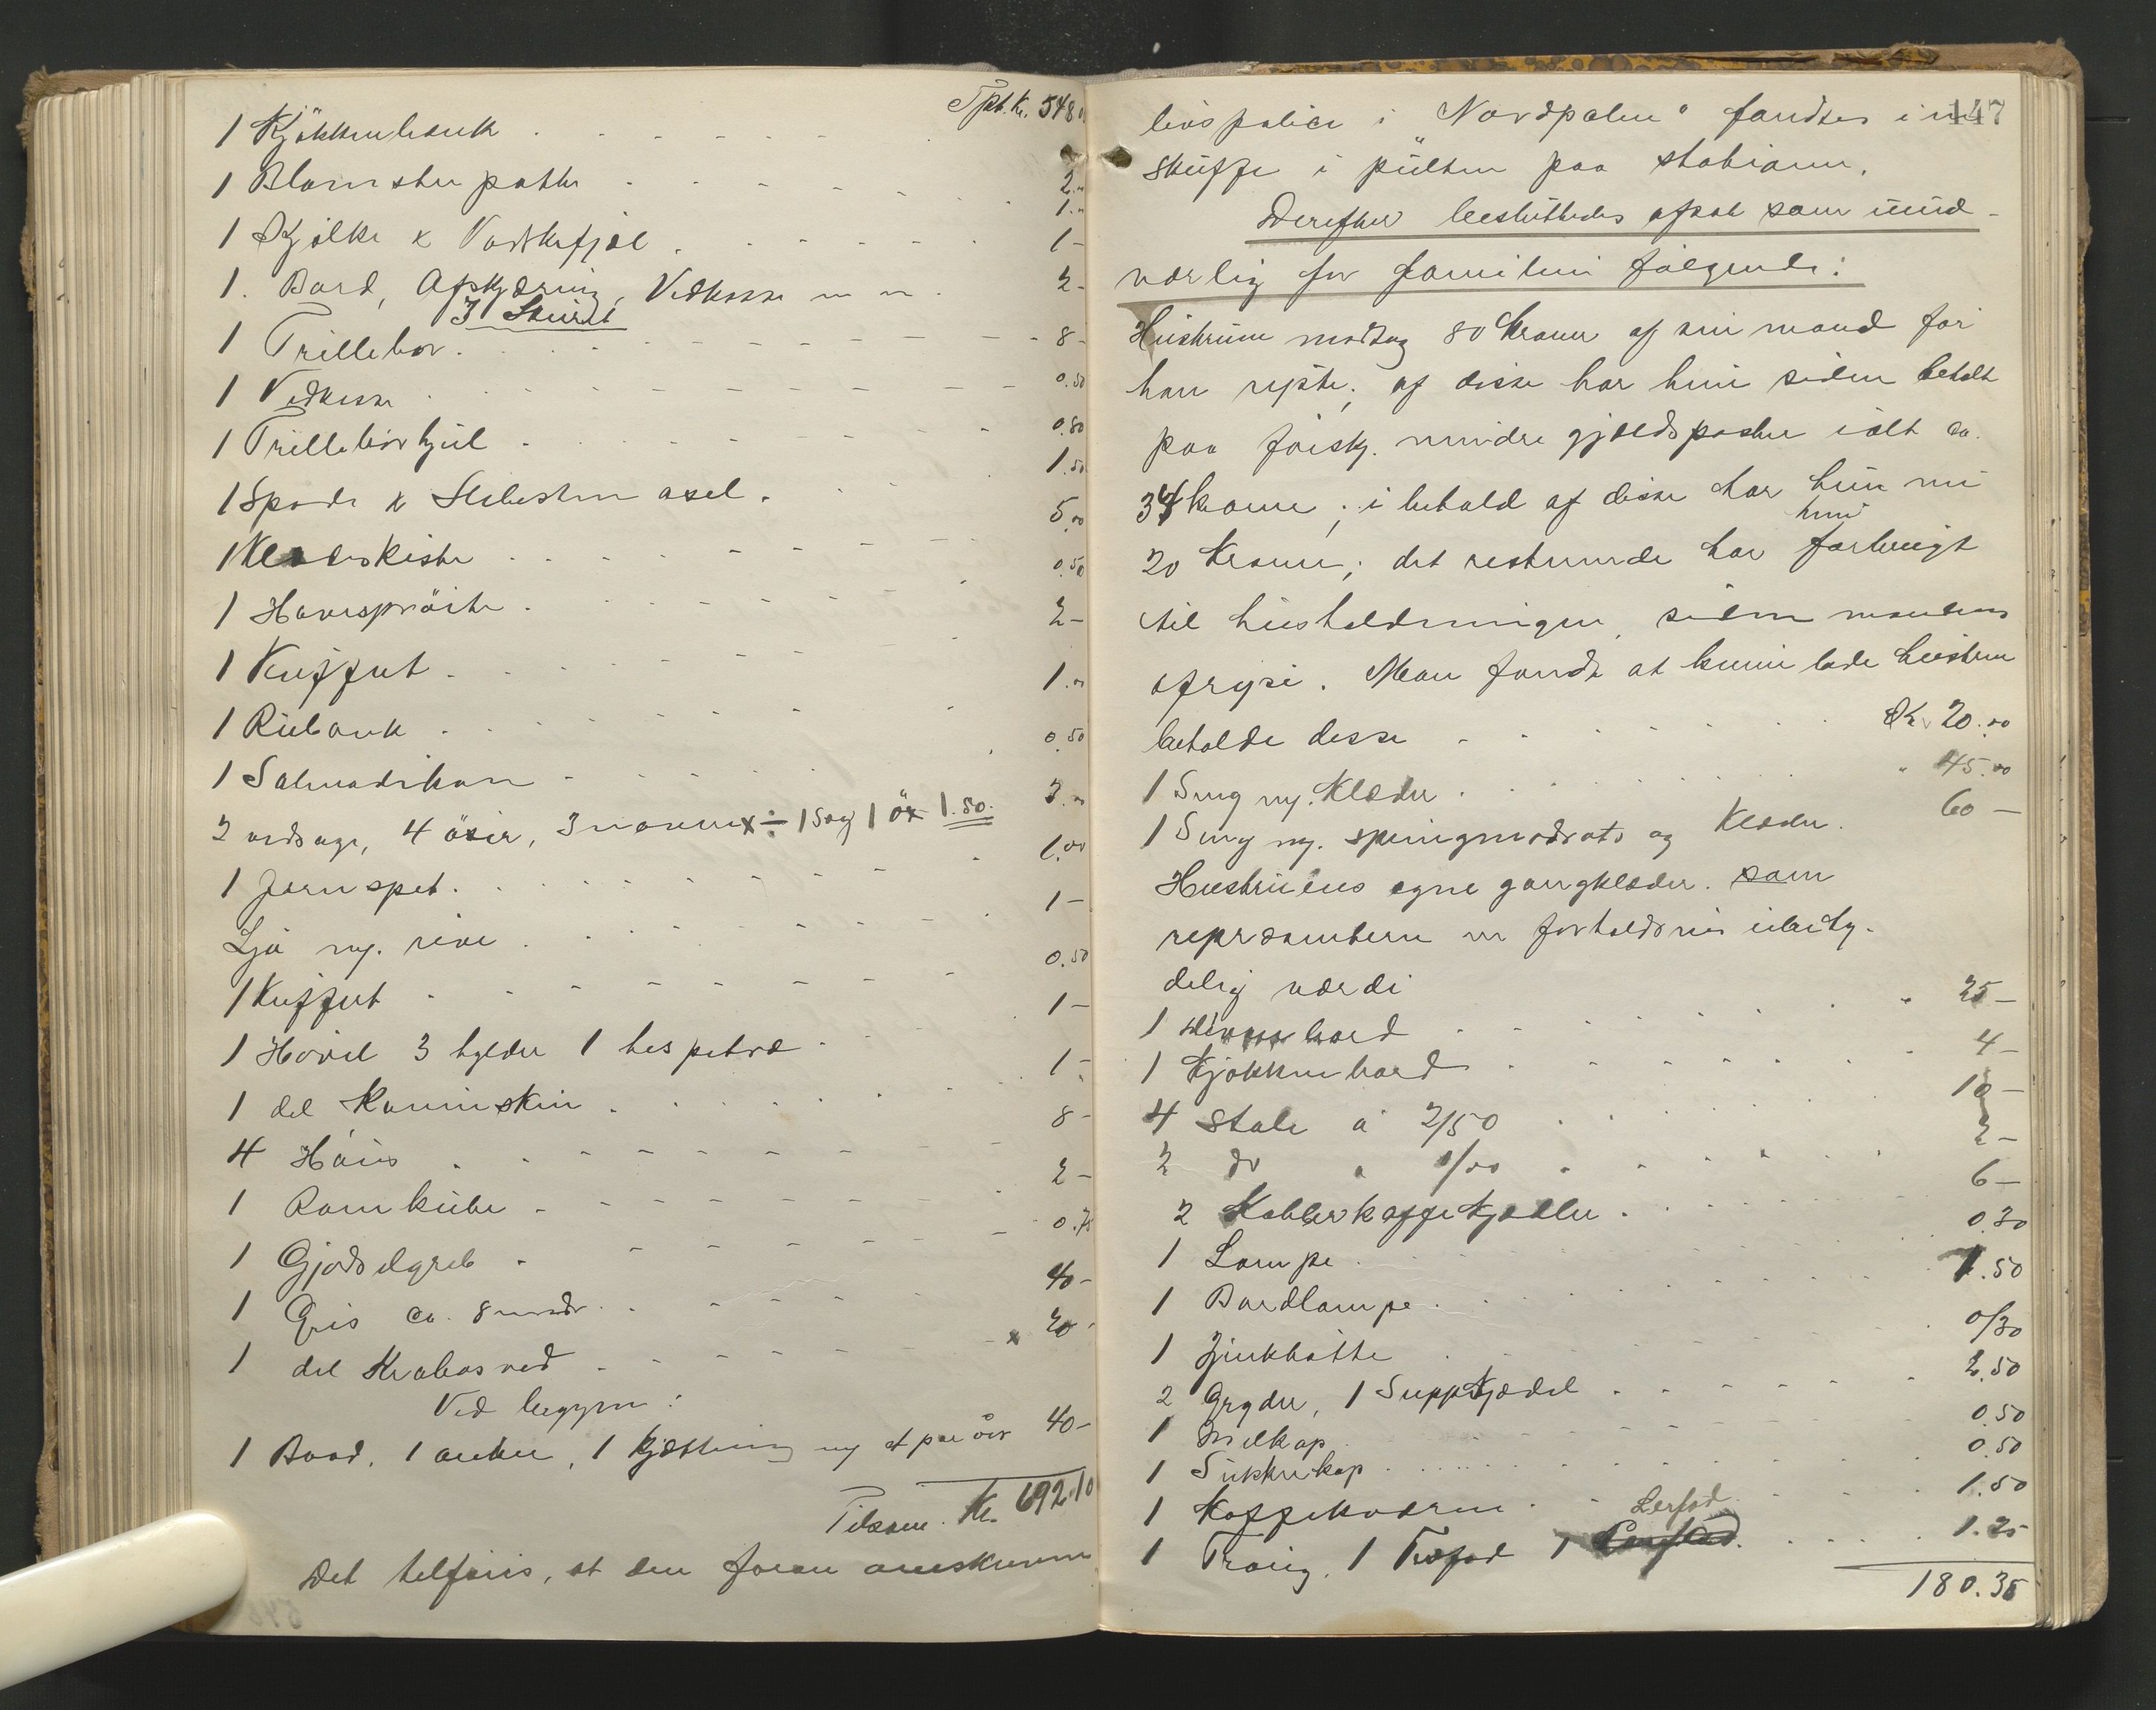 Tpt. Kr. 548
1 Kjøkkenbænk 2.
1 Blomsterpotte 1.
1 Kjælke & Vaskefjæl 1 -
1. Bord, Afskjæring, Vedkasse 2 -
3 Skind
1 Trillebør 8 -
1 Vedkasse 0.50
1 Trillebørhjul 0.80
1 Spade & Slibesten axel. 1.50
1 Klædeskiste 5.00
1 Havesprøite 0.50
1 Kuffert 2 -
1 Rubank 1.
1 Salmodikon 0.50
2 vedsage, 4 öxer, 3 ÷ 1 Sag 1 öx 1.50. 3.
1 Jernspet 1.00
Ljå og rive 1 -
1 Kuffert 0.50
1 Hövel 3 hylder 1 hespetræ 1 -
1 del Kaninskin 1 -
4 Höns 8 -
1 Ramkube 2 -
1 Gjødselgreb 0.75
1 Gris ca. 8 mndr. 40 -
1 del Krabasved x 20 -
Ved bryggen:
1 Baad, 1 anker, 1 Kjætting og et par årer 40 -
Tilsam. Kr. 692.10
Det tilføies, at den foran
147
livspolice i "Nordpolen" fandtes i en
skuffe i pulten paa
Derefter besluttedes afsat som und-
værlig for familien følgende:
Hustruen modtog 80 Kroner af sin mand før
han reiste; af disse har hun siden betalt
paa forskj. mindre gjældsposter ialt ca.
34 kroner; i behold af disse har hun nu
20 Kroner; det resterende har hun forbrugt
til husholdningen, siden mandens
afreise. Man fandt at kunne lade hustruen
beholde disse Kr. 20.00
1 Seng og Klæder " 45.00
1 Seng og springmadrats og Klæder. 60 -
Hustruens egne gangklæder. som
repræsenterer en forholdsvis ubety-
delig værdi " 25 -
1 bord 4 -
1 Kjøkkenbord 10 -
4 Stole a 2/50
2 do a 1/00 2 -
2 Kobberkaffekjedler 6 -
1 Lampe 0.30
1 Bordlampe 1.50
1 Zinkbøtte 0/30
2 Gryder, 1 Suppekjedel 2.50
1 Melkop 0.50
1 Sukkerkop 0.50
1 Kaffekværn 1.50
1 Traug, 1 Træfad 1 Lerfad 1.25
180.35